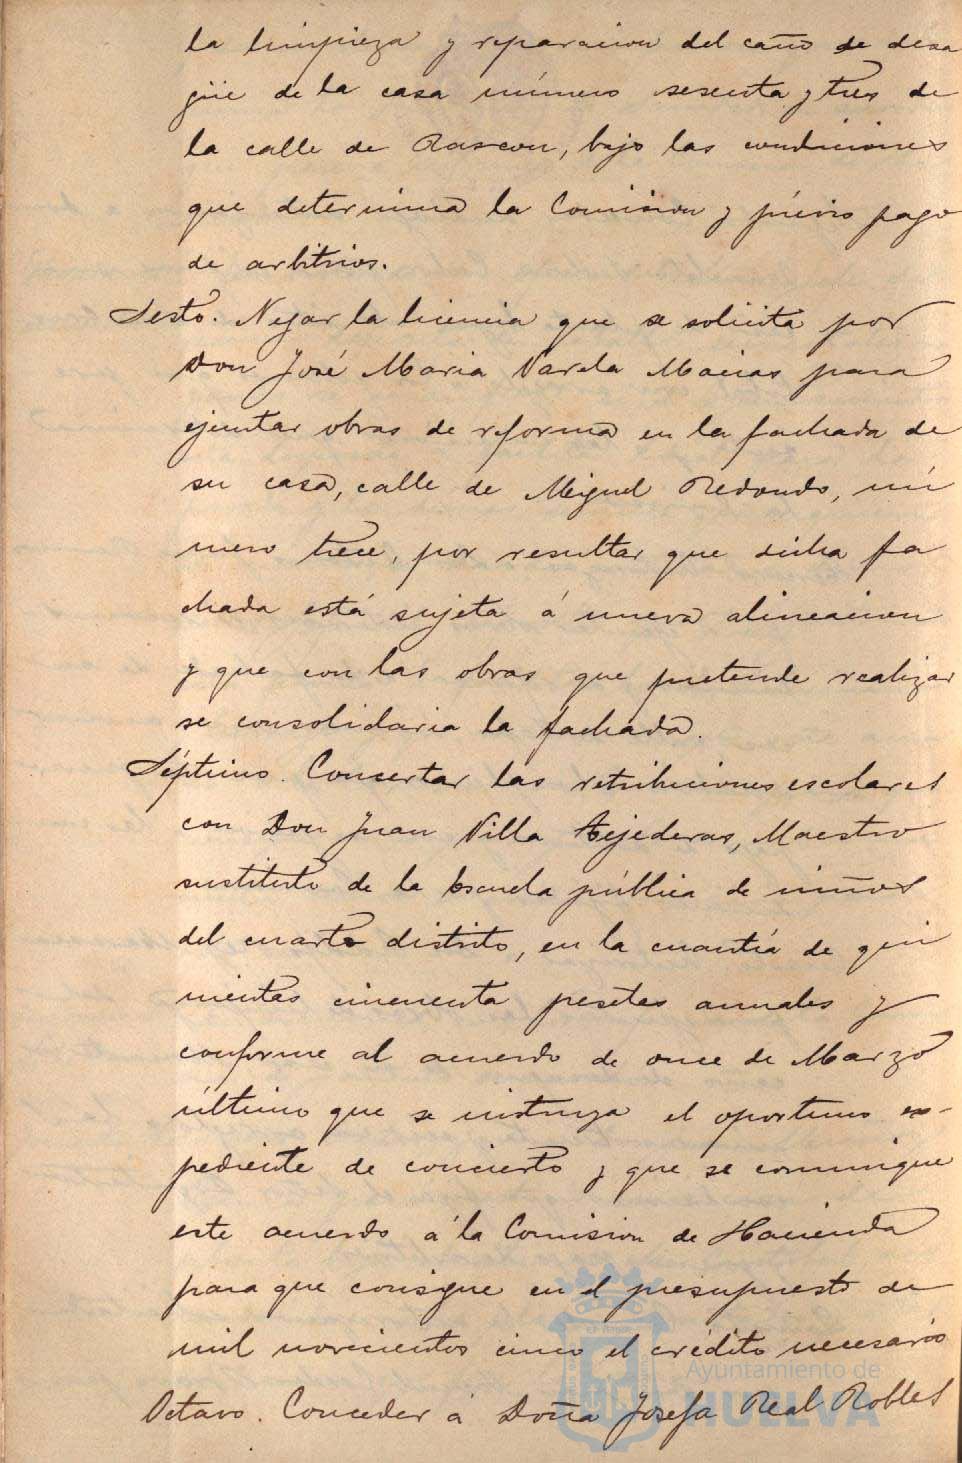 la limpieza y reparacion del caño de desa
güe de la casa número sesenta y tres de
la calle de Rascon, bajo las condiciones
que determina la Comision y prévio pago
de arbitrios.
Sesto. Negar la licencia que se solicita por
Don José Maria Varela Macias para
ejecutar obras de reforma en la fachada de
su casa, calle de Miguel Redondo, nú
mero trece, por resultar que dicha fa
chada está sujeta á nueva alineacion
y que con las obras que pretende realizar
se consolidaria la fachada.
Séptimo. Concertar las retribuciones escolares
con Don Juan Villa Tejederas, Maestro
sustituto de la escuela pública de niños
del cuarto distrito, en la cuantía de qui
nientas cincuenta pesetas anuales y
conforme al acuerdo de once de Marzo
último que se instruya el oportuno ex-
pediente de concierto y que se comunique
este acuerdo á la Comision de Hacienda
para que consigne en el presupuesto de
mil novecientos cinco el crédito necesario
Octavo. Conceder á Doña Josefa Real Robles
Ayuntamiento de
HUELVA